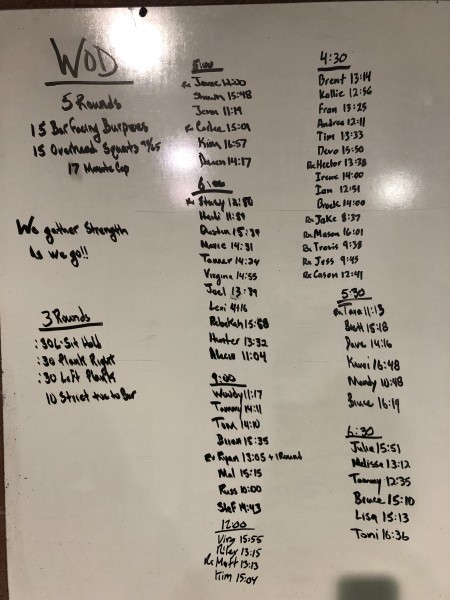 WOD
5 Rounds
15 Bar Facing Burpees
15 Overhead Squats 95/65
17 Minute Cap
We gather Strength
As we go!!
3 Rounds
:30 L-Sit Hold
:30 Plank Right
:30 Left Plank
10 Strict toe to Bar
5:00
Rx 12:00
Shawn 15:48
Jenn 11:19
Rx 15:09
Kim 16:57
14:17
6:00
Rx Stacy
Heidi 11:59
Dustin 15:39
Marie 14:31
Tanner 14:24
Virginia 14:55
Joel 13:39
Lexi
Rebekah 15:58
Hunter 13:32
Alecia 11:04
9:00
Woody 11:17
Tammy 14:11
Tom 14:10
Brian 15:35
Rx Ryan 13:05 + 1 Round
Mal 15:15
Russ 10:00
Stef 14:43
12:00
Virg 15:55
Riley 13:15
Rx Matt 13:13
Kim 15:04
4:30
Brent 13:14
Kallie 12:56
Fran 13:25
Andrea 12:11
Tim 13:33
Devo 15:50
Rx Hector 13:38
Irene 14:00
Ian 12:51
Brock 14:00
Rx Jake 8:37
Rx Mason 16:01
Rx Travis 9:38
Rx Jess 9:45
Rx Cason 12:41
5:30
Rx Tara 11:13
Brett 15:18
Dave 14:16
16:48
Mandy 10:48
Bruce 16:19
6:30
Julia 15:51
Melissa 13:12
Tammy 12:35
Bruce 15:10
Lisa 15:13
Toni 16:36